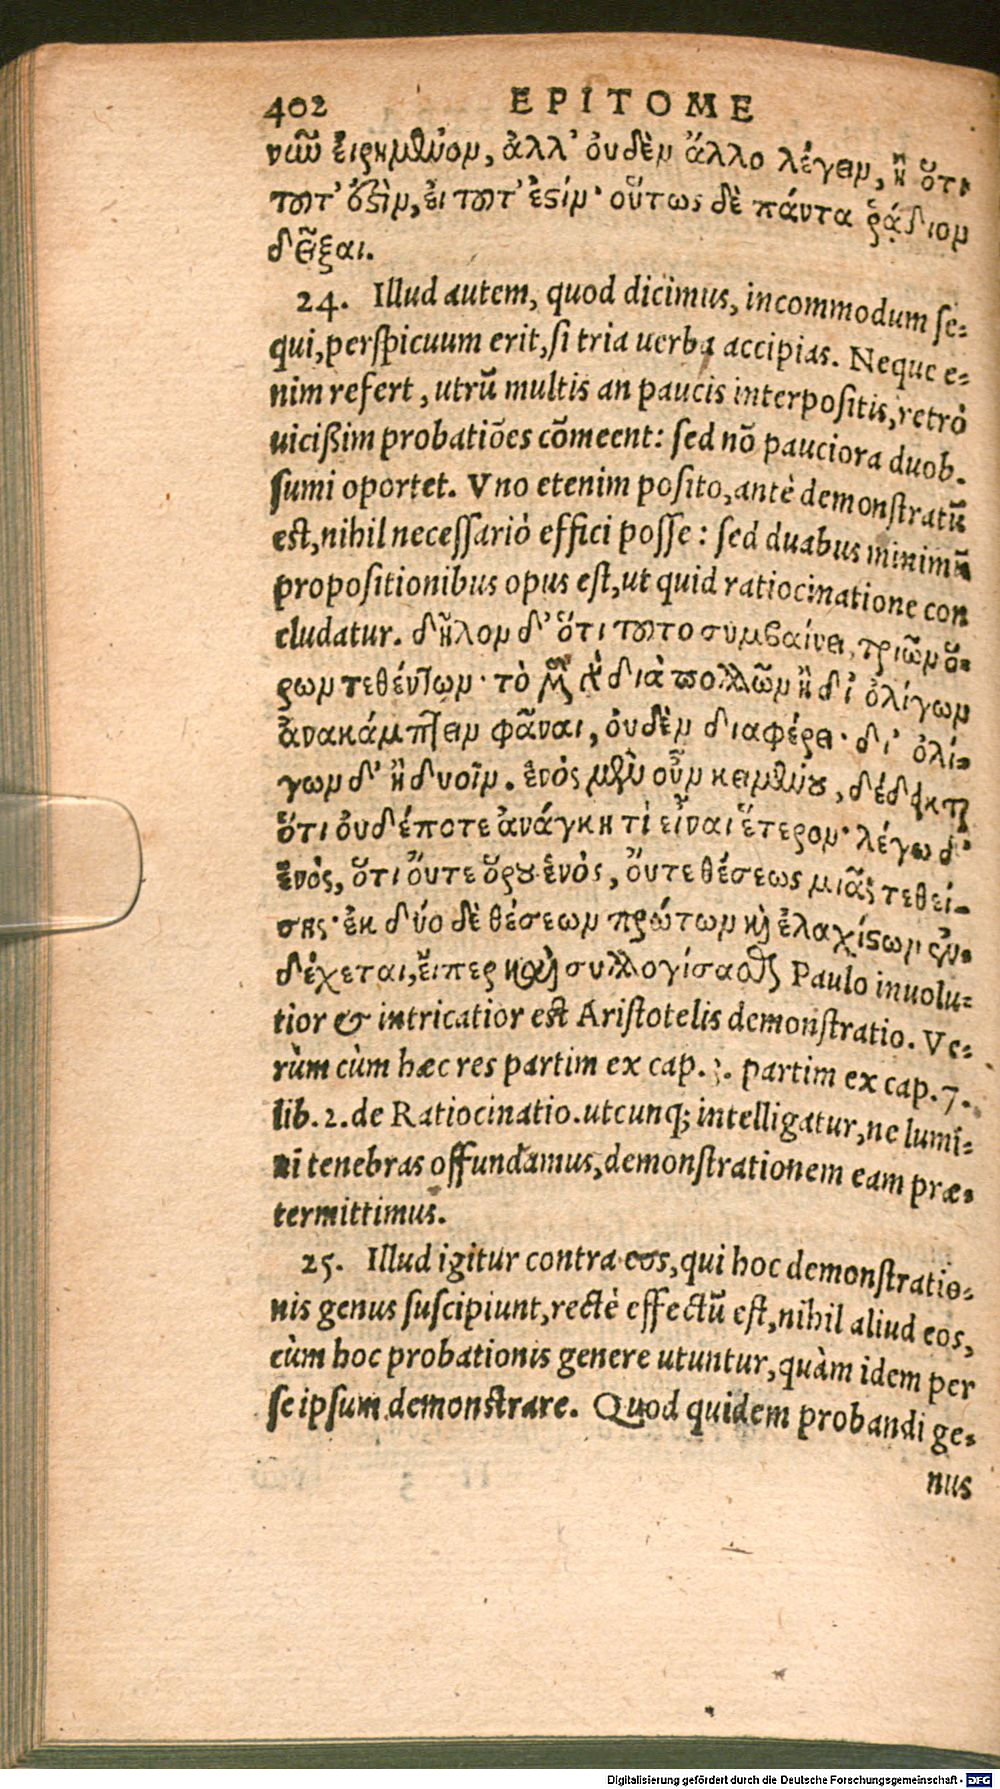 402 EPITOME
νῦν εἰρημένον, ἀλλ' οὐδὲν ἄλλο λέγειν, ἢ ὅτι
τοῦτ' ἔστιν, εἰ τοῦτ' ἔστιν· οὕτως δὲ πάντα ῥᾴδιον
δεῖξαι.
24. Illud autem, quod dicimus, incommodum se-
qui, perspicuum erit, si tria uerba accipias. Neque e-
nim refert, utrũ multis an paucis interpositis, retrò
uicißim probatiões cõmeent: sed nõ pauciora duob.
sumi oportet. Vno etenim posito, antè demonstratũ
est, nihil necessariò effici posse: sed duabus minimũ
propositionibus opus est, ut quid ratiocinatione con
cludatur. δῆλον δ' ὅτι τοῦτο συμβαίνει, τριῶν ὅ-
ρων τεθέντων· τὸ μὲν γὰρ διὰ πολλῶν ἢ δι' ὀλίγων
ἀνακάμπτειν φᾶναι, οὐδὲν διαφέρει· δι' ὀλί-
γων δ' ἢ δυοῖν. ἑνὸς μὲν οὖν κειμένου, δέδεικται
ὅτι οὐδέποτε ἀνάγκη τὶ εἶναι ἕτερον· λέγω δ'
ἑνὸς, ὅτι οὔτε ὅρου ἑνὸς, οὔτε θέσεως μιᾶς τεθεί-
σης· ἐκ δύο δὲ θέσεων πρώτων καὶ ἐλαχίστων ἐν-
δέχεται, εἴπερ καὶ συλλογίσασθαι Paulò inuolu-
tior & intricatior est Aristotelis demonstratio. Ve-
rùm cùm hæc res partim ex cap. 3. partim ex cap. 7.
lib. 2. de Ratiocinatio. utcunq; intelligatur, ne lumi-
ni tenebras offundamus, demonstrationem eam præ-
termittimus.
25. Illud igitur contra eos, qui hoc demonstratio-
nis genus suscipiunt, rectè effectũ est, nihil aliud eos,
cùm hoc probationis genere utuntur, quàm idem per
se ipsum demonstrare. Quod quidem probandi ge-
nus
Digitalisierung gefördert durch die Deutsche Forschungsgemeinschaft - DFG